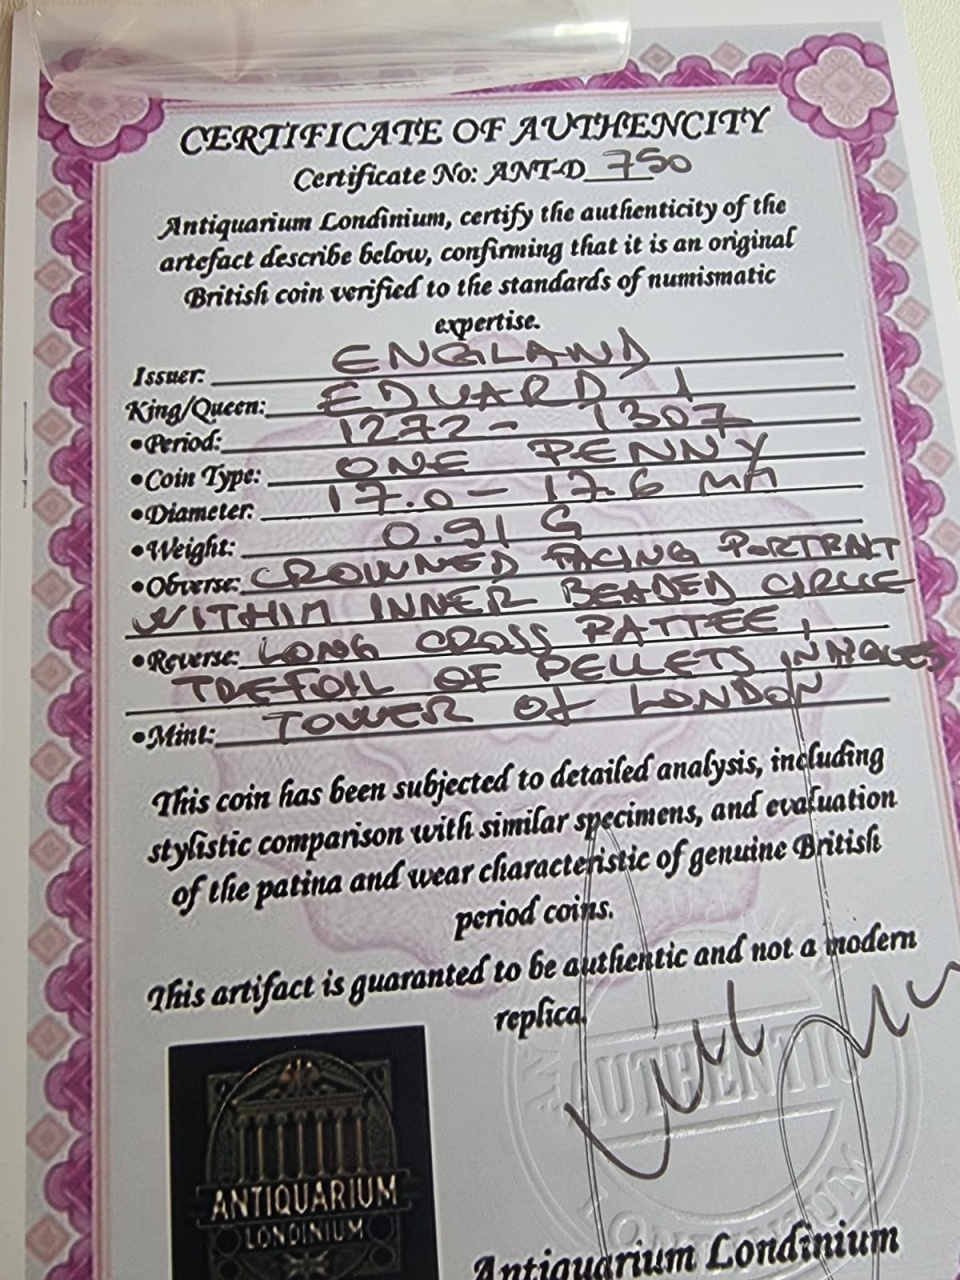 CERTIFICATE OF AUTHENCITY
Certificate No: ANT-D 750
Antiquarium Londinium, certify the authenticity of the
artefact describe below, confirming that it is an original
British coin verified to the standards of numismatic
expertise.
Issuer: ENGLAND
King/Queen: EDUARD I
•Period: 1272 - 1307
•Coin Type: ONE PENNY
•Diameter: 17.0 - 17.6 MM
•Weight: 0.91 G
•Obverse: CROWNED FACING PORTRAIT
WITHIN INNER BEADED CIRCLE
•Reverse: LONG CROSS PATTEE,
TREFOIL OF PELLETS IN
•Mint: TOWER OF LONDON
This coin has been subjected to detailed analysis, including
stylistic comparison with similar specimens, and evaluation
of the patina and wear characteristic of genuine British
period coins.
This artifact is guaranted to be authentic and not a modern
replica.
AUTHENTIC
ANTIQUARIUM
LONDINIUM
Antiquarium Londinium